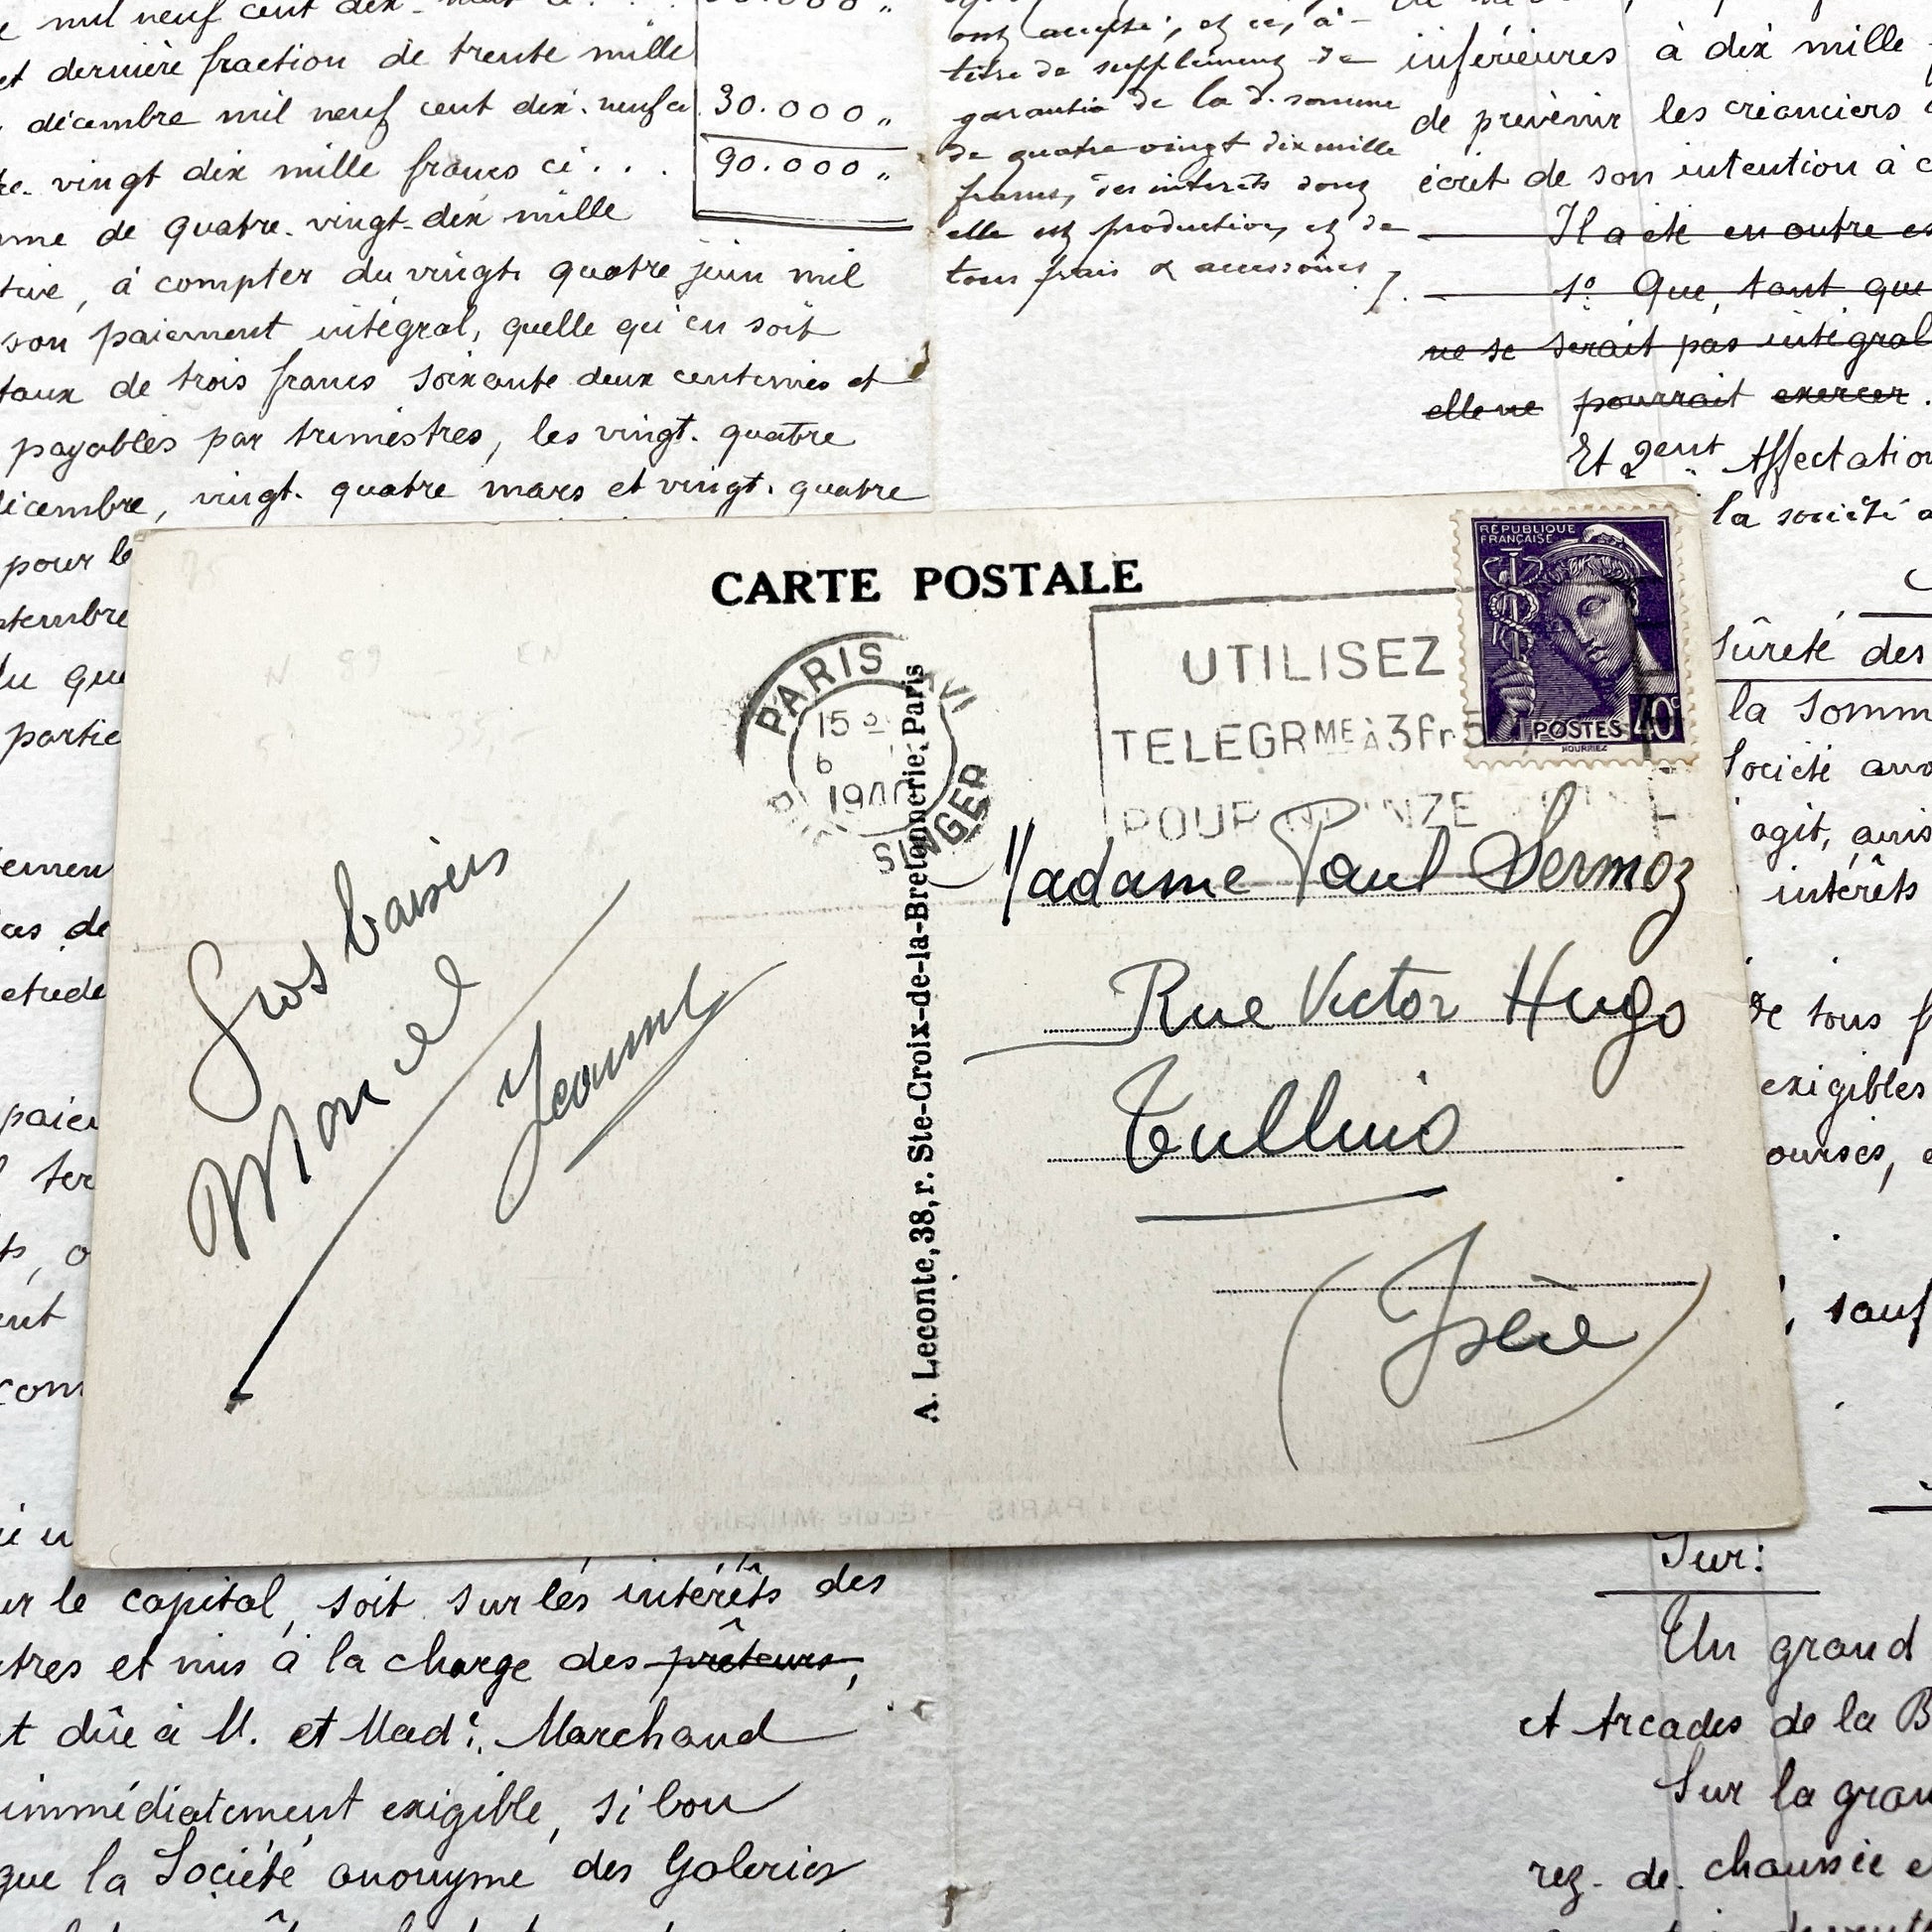 mil neuf cent dix
et dernière fraction de trente mille
décembre mil neuf cent dix. neuf ci
30.000 „
vingt dix mille francs ci . . .
90.000 „
de quatre. vingt. dix mille
à compter du vingt. quatre juin mil
son paiement intégral, quelle qu'en soit
taux de trois francs soixante deux centimes et
payables par trimestres, les vingt. quatre
décembre, vingt. quatre mars et vingt. quatre
pour le
du que
partie
etude
ont accepté, et ce, à
titre de supplément de
garantie de la d. somme
de quatre vingt dix mille
francs, des intérêts dont
elle est production, et de
tous frais & accessoires /.
inférieures à dix mille
de prévenir les créanciers
écrit de son intention à
Il a été en outre
1º Que, tant que
ne se serait pas intégral
elle ne pourrait exercer .
Et 2ent Affectation
la société
sûreté des
la somm
Société
agit,
intérêts
de tous
exigibles
sauf
CARTE POSTALE
RÉPUBLIQUE
FRANÇAISE
POSTES 40c
HOURRIEZ
PARIS XVI
15
6
1940
SINGER
UTILISEZ
TELEGRME À 3Fr5
POUR
A. Leconte, 38, r. Ste-Croix-de-la-Bretonnerie, Paris
Gros baisers
Jeanne
Madame Paul Sermoz
Rue Victor Hugo
Tullins
(Isère)
PARIS - École Militaire
sur le capital, soit sur les intérêts des
et mis à la charge des prêteurs,
dûe à M. et Made. Marchand
immédiatement exigible, si bon
que la Société anonyme des Galeries
Sur:
Un grand
et Arcades de la B
Sur la gran
rez. de. chaussée